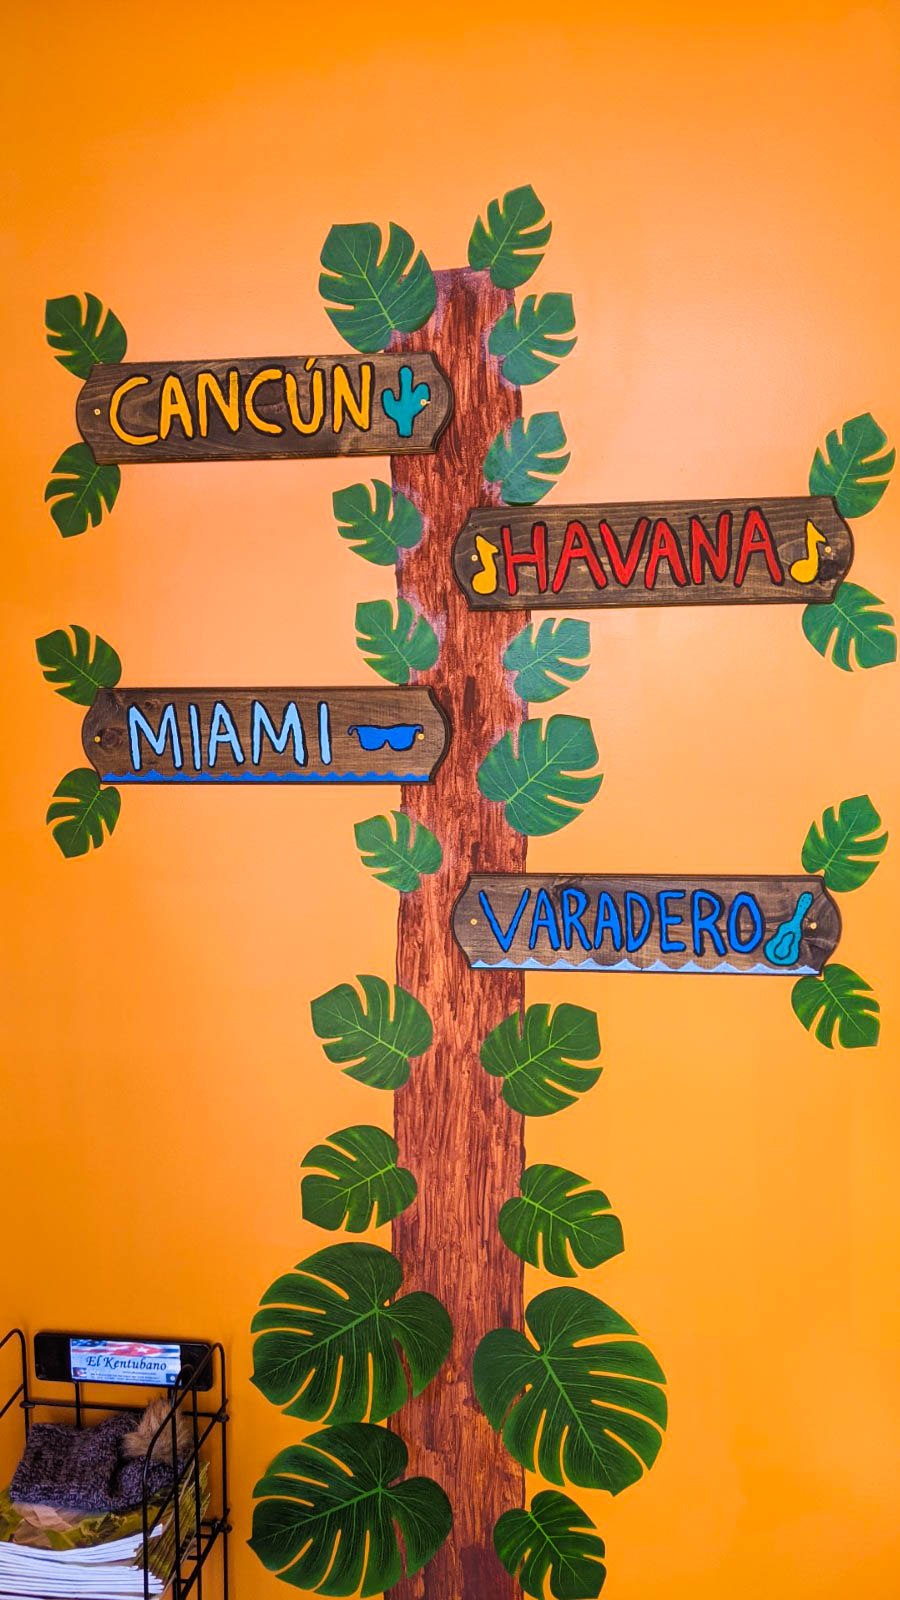 CANCÚN
HAVANA
MIAMI
VARADERO
El Kentubano